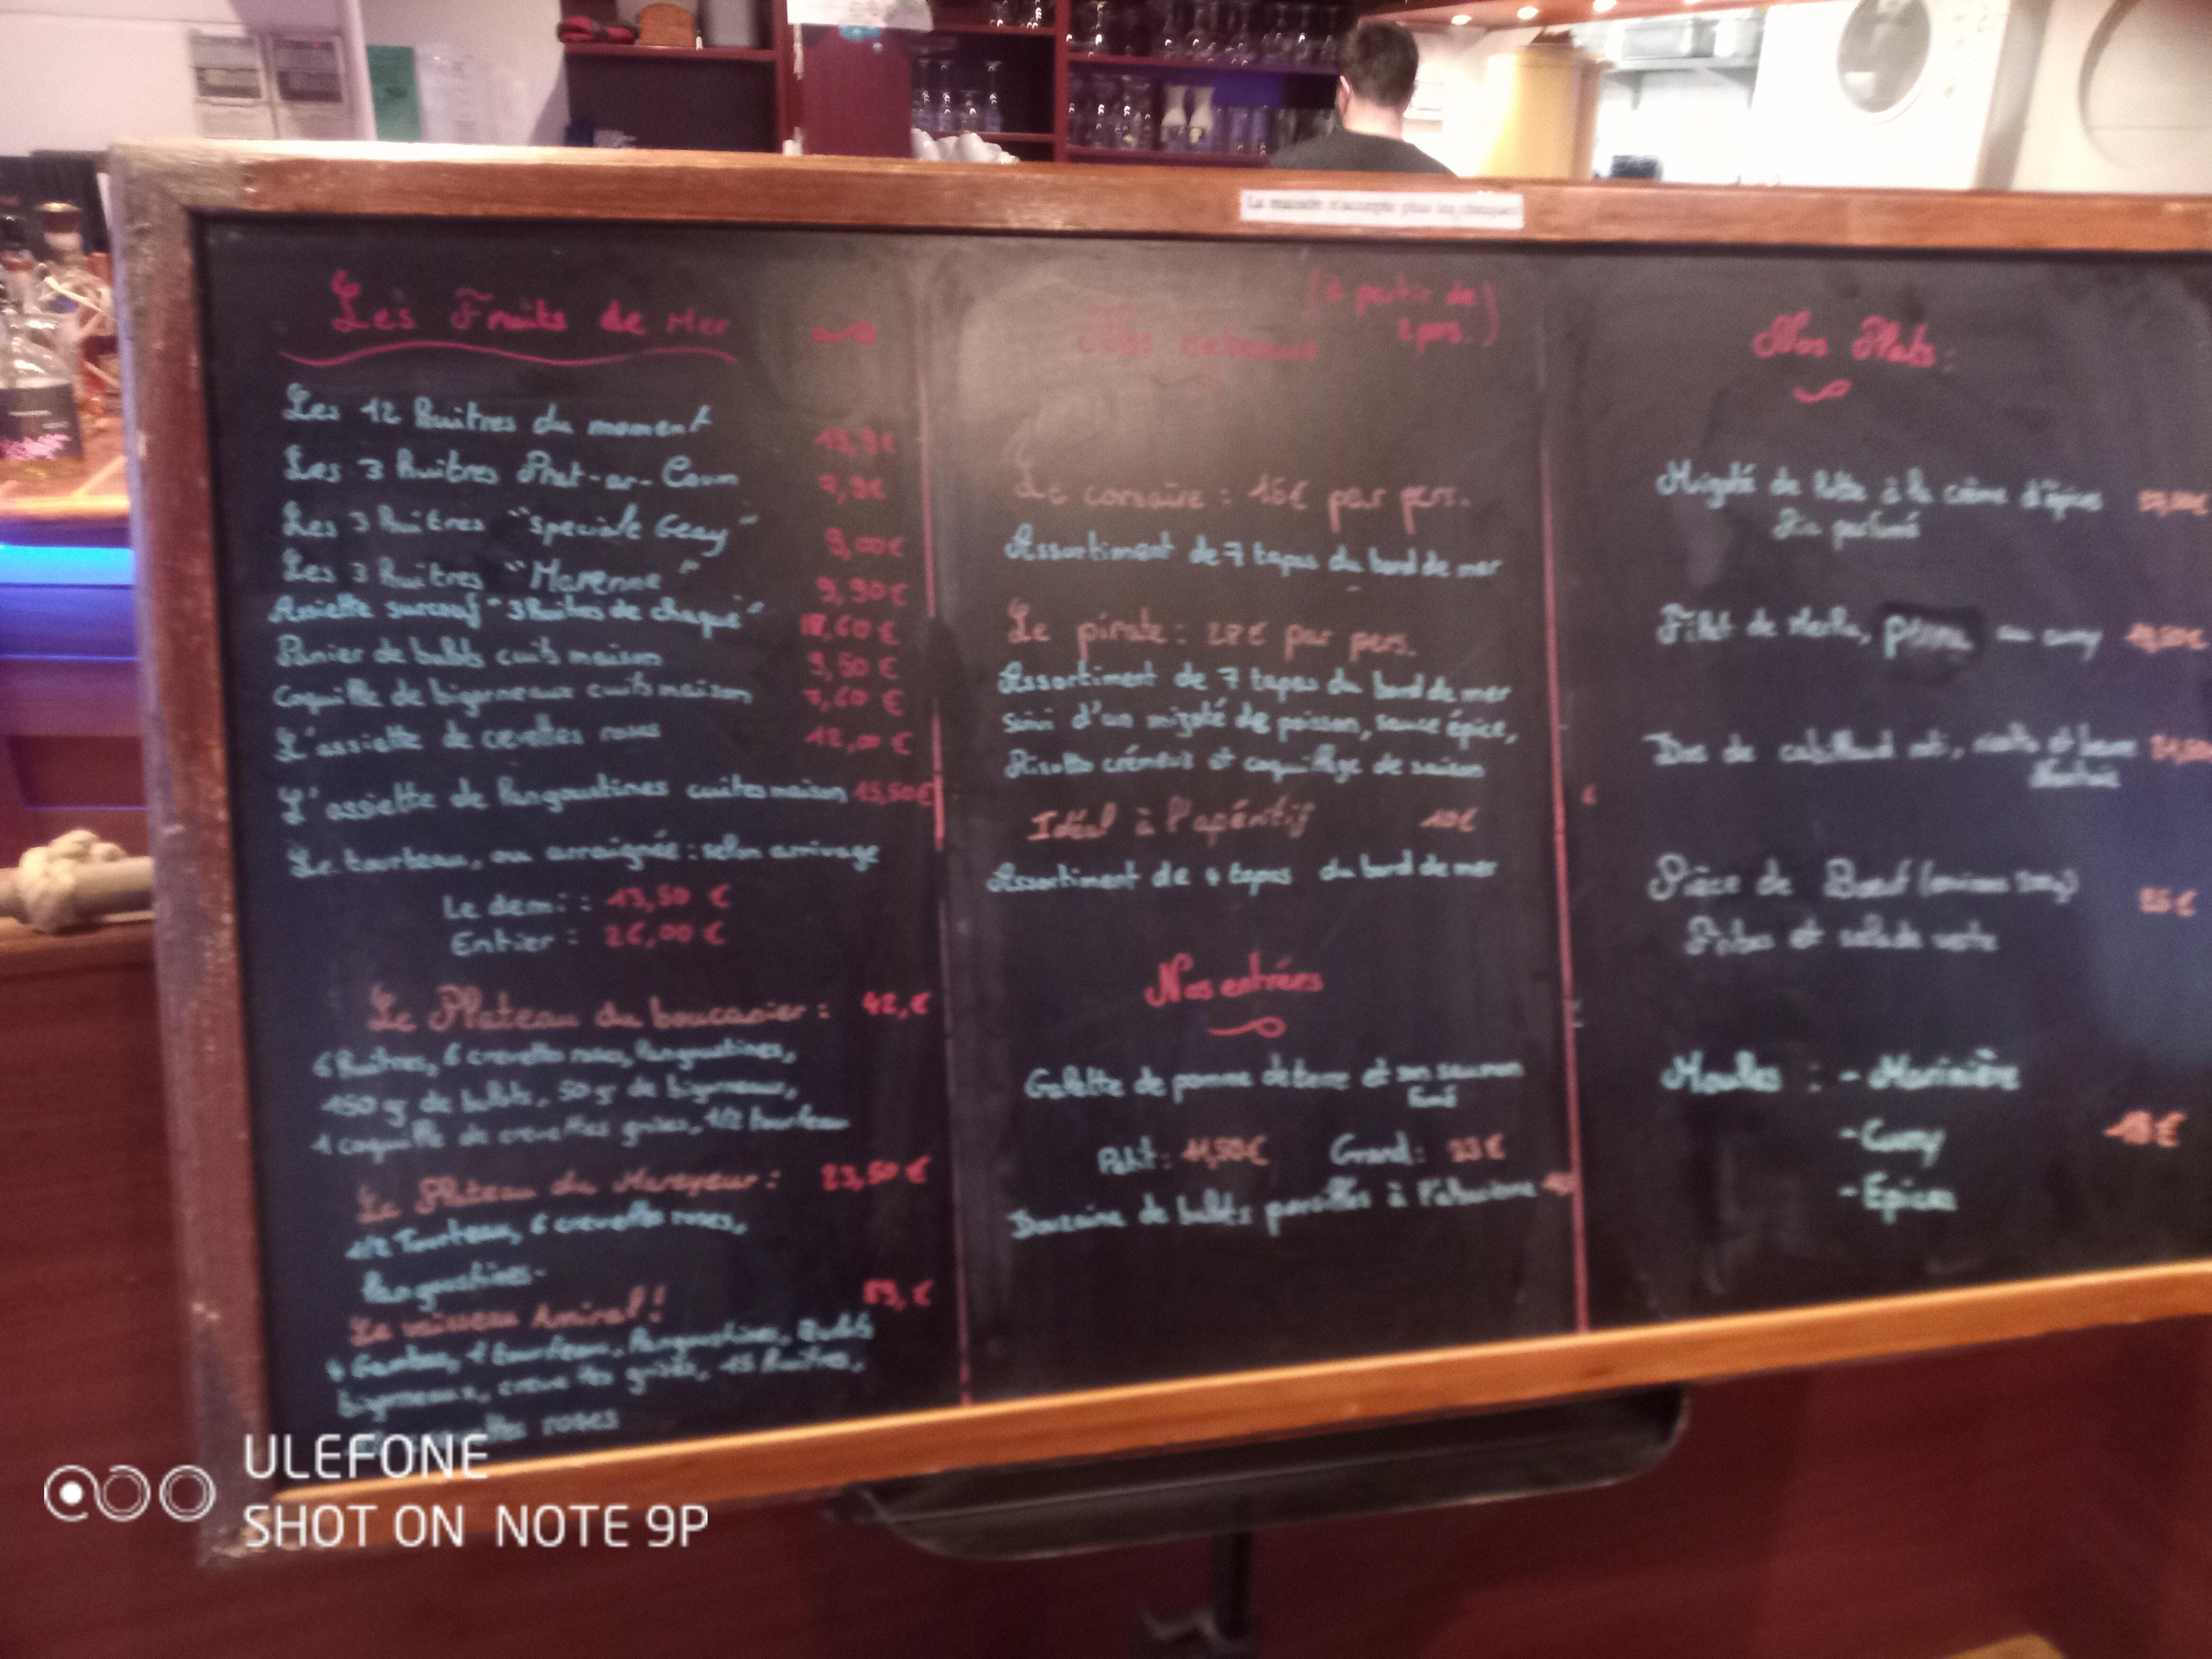 La maison n'accepte plus les chèques
Les Fruits de Mer
Les 12 huitres du moment
Les 3 huitres Prat-ar-Coum 7,9€
Les 3 huitres "speciale Geay" 9,00€
Les 3 huitres "Marenne" 9,90€
Assiette surcouf "3 huitres de chaque"
Panier de bulots cuits maison 9,50€
Coquille de bigorneaux cuits maison 7,60€
L'assiette de crevettes roses 12,00€
L'assiette de langoustines cuites maison 15,50€
Le tourteau, ou arraignée : selon arrivage
Le demi : 13,50 €
Entier : 26,00 €
Le Plateau du boucanier : 42,€
6 huitres, 6 crevettes roses, langoustines,
150 g de bulots, 50 g de bigorneaux,
1 coquille de crevettes grises, 1/2 tourteau
Le Plateau du Mareyeur : 23,50€
1/2 Tourteau, 6 crevettes roses,
langoustines.
Le vaisseau Amiral ! 89,€
4 Gambas, 1 tourteau, langoustines, Bulots
bigorneaux, crevettes grises, 15 huitres,
crevettes roses
(à partir de
2 pers.)
Le corsaire : 16€ par pers.
Assortiment de 7 tapas du bord de mer
Le pirate : 28€ par pers.
Assortiment de 7 tapas du bord de mer
suivi d'un mijoté de poisson, sauce épice,
Risotto crémeux et coquillage de saison
Idéal à l'apéritif 10€
Assortiment de 4 tapas du bord de mer
Nos entrées
Galette de pomme de terre et son saumon
fumé
Petit : 11,50€ Grand : 23€
Douzaine de bulots persillés à l'
Nos Plats :
Mijoté de lotte à la crème d'épices
Riz parfumé
Filet de Merlu, au curry
Dos de cabillaud roti, risotto et beurre
Pièce de Boeuf
Frites et salade verte 25€
Moules : - Marinière
- Curry 18€
- Epices
ULEFONE
SHOT ON NOTE 9P